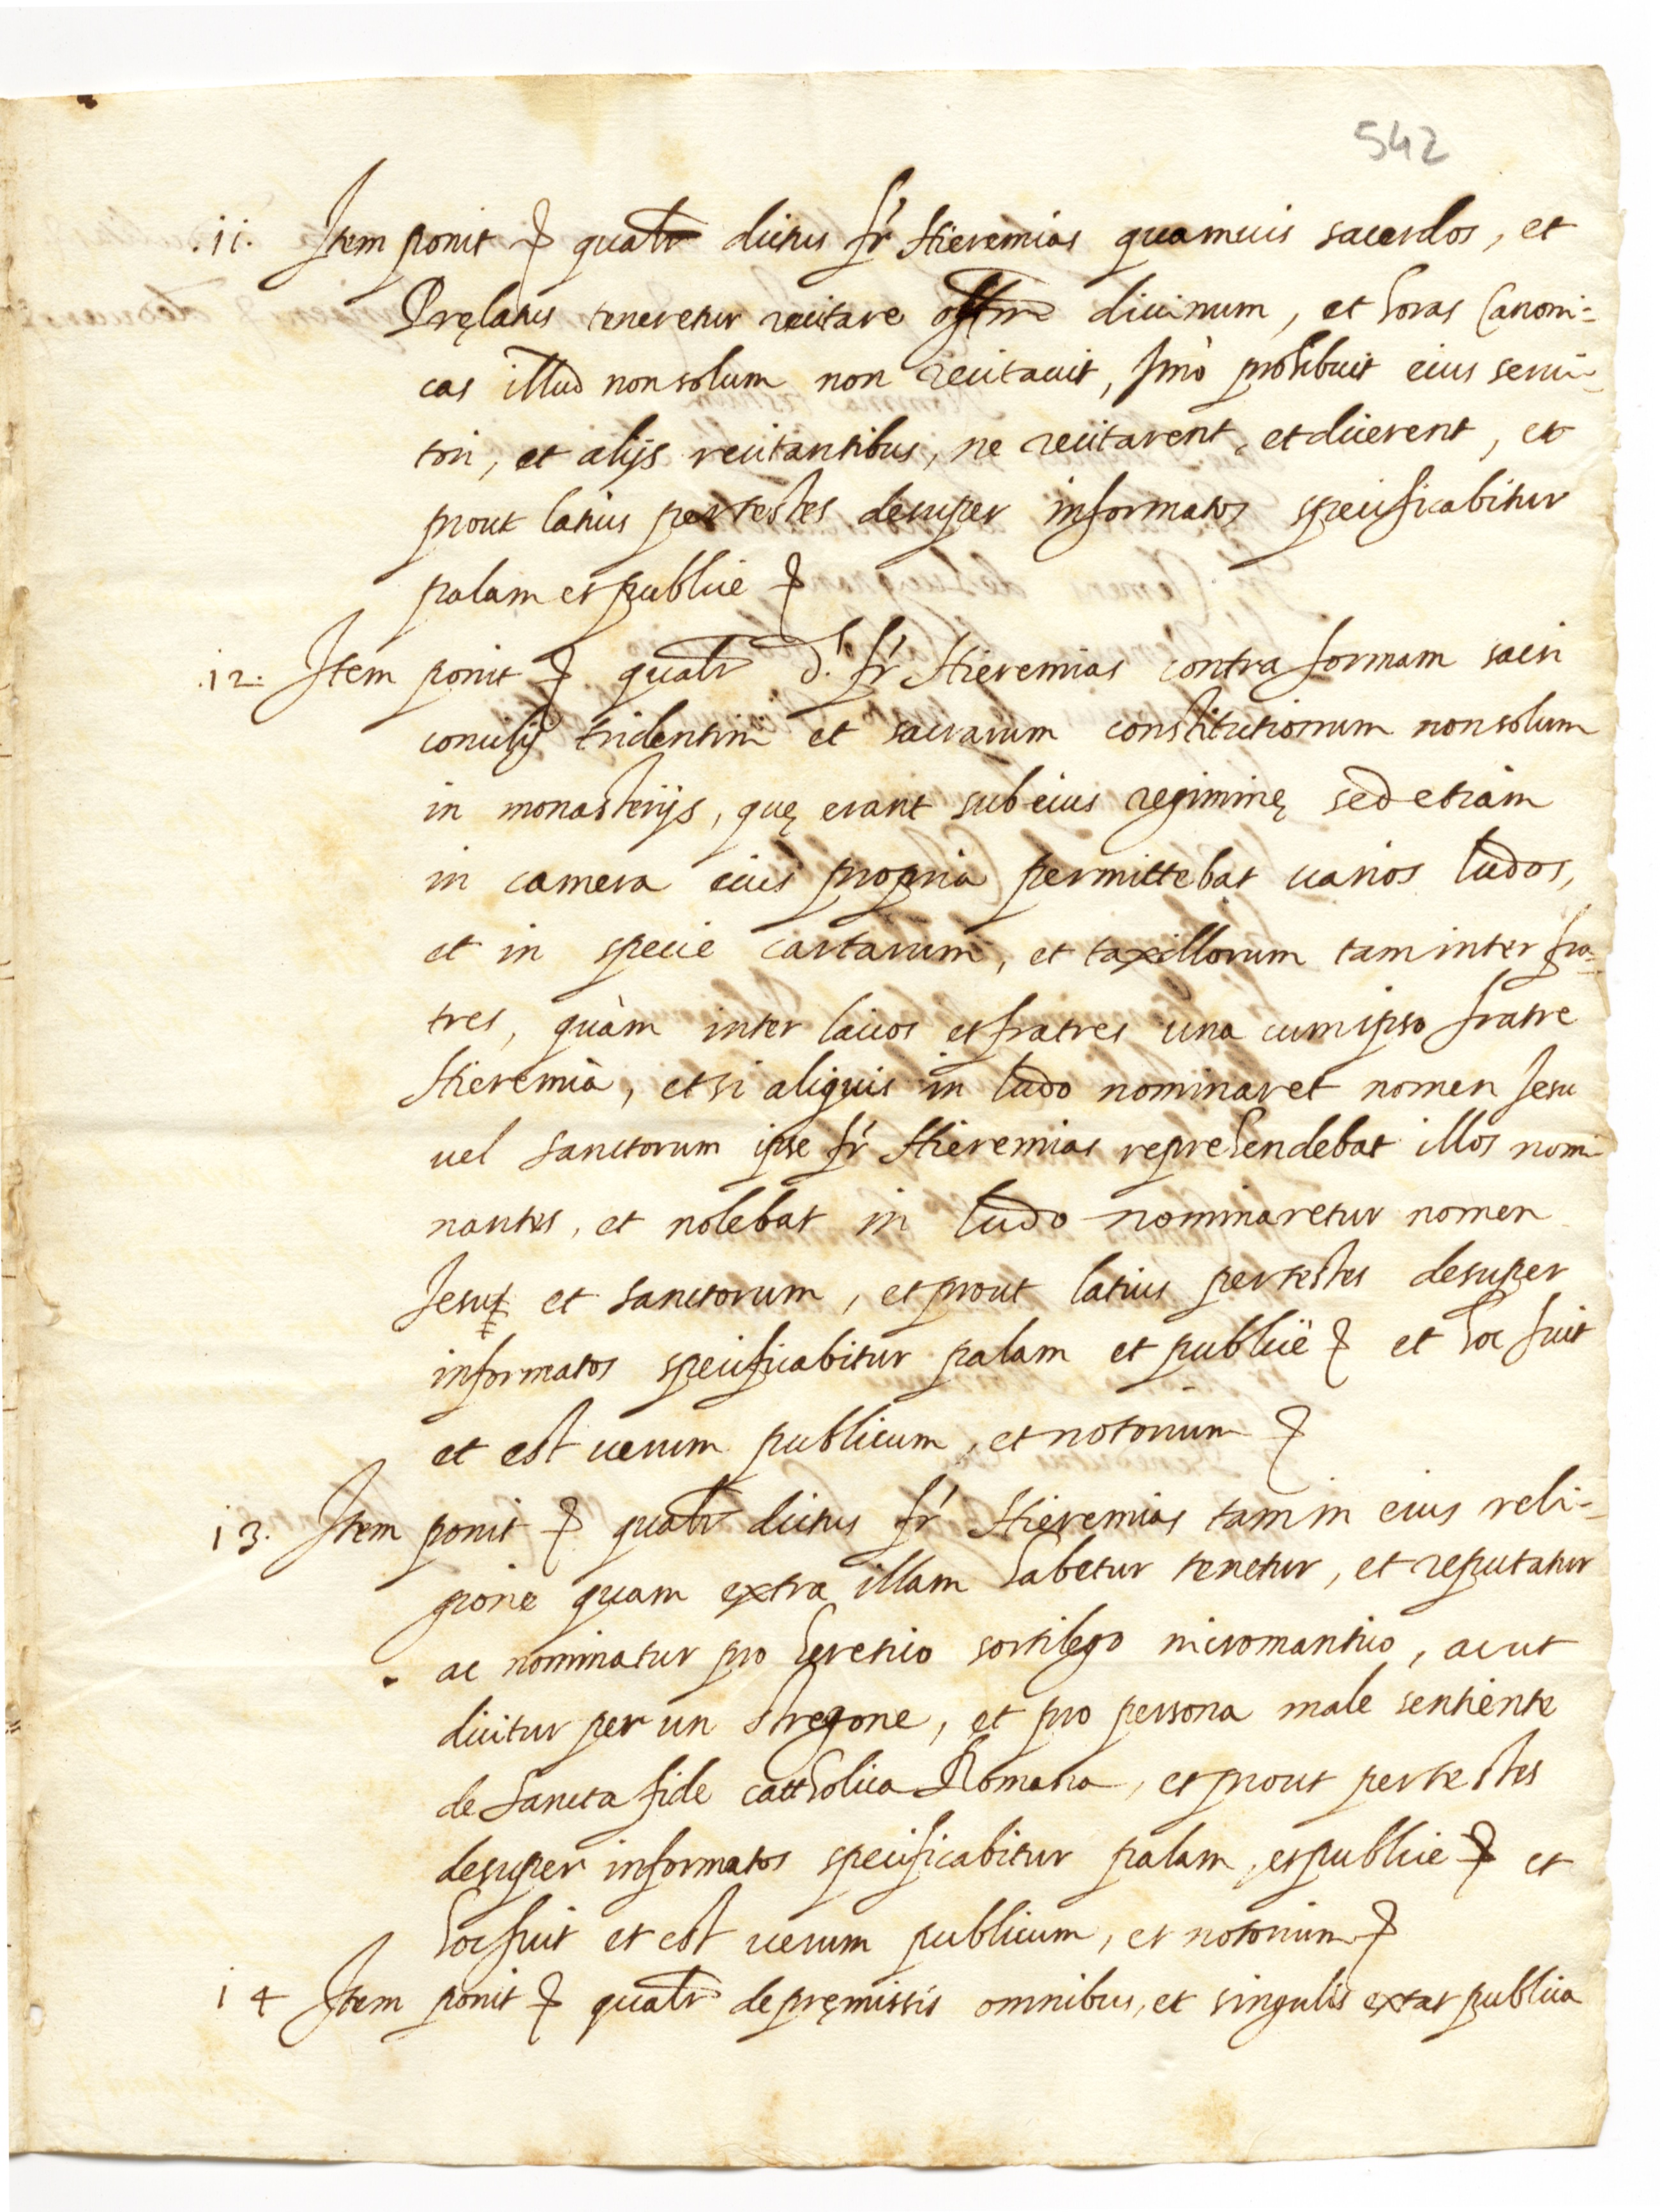 542
.11. Item ponit etc qualr dictus fr Hieremias quamuis sacerdos, et
Pręlatus teneretur recitare offm diuinum, et horas Canoni-
cas illud non solum non recitauit, Imò prohibuit eius serui-
tori, et alijs recitantibus, ne recitarent, et dicerent, et
prout latius per testes desuper informatos specificabitur
palam et publicè etc
.12. Item ponit etc qualr d. fr Hieremias contra formam sacri
concilij tridentini et sacrarum constitutionum non solum
in monasterijs, quę erant sub eius regiminę sed etiam
in camera eius propria permittebat uarios ludos,
et in specie cartarum, et taxillorum tam inter fra-
tres, quàm inter laicos et fratres una cum ipso fratre
Hieremia, et si aliquis in ludo nominaret nomen Jesu
uel sanctorum ipse fr Hieremias reprehendebat illos nomi
nantes, et nolebat in ludo nominaretur nomen
Jesu et sanctorum, et prout latius per testes desuper
informatos specificabitur palam et publicè etc et hoc fuit
et est uerum publicum, et notorium etc
13. Item ponit etc qualr dictus fr Hieremias tam in eius reli-
gione quam extra illam habetur tenetur, et reputatur
ac nominatur pro heretico sortilego nicromantico, ac ut
dicitur per un stregone, et pro persona male sentiente
de sancta fide cattholica Romana, et prout per testes
desuper informatos specificabitur palam, et publicè etc et
hoc fuit et est uerum publicum, et notorium etc
14 Item ponit etc qualr de pręmissis omnibus, et singulis extat publica